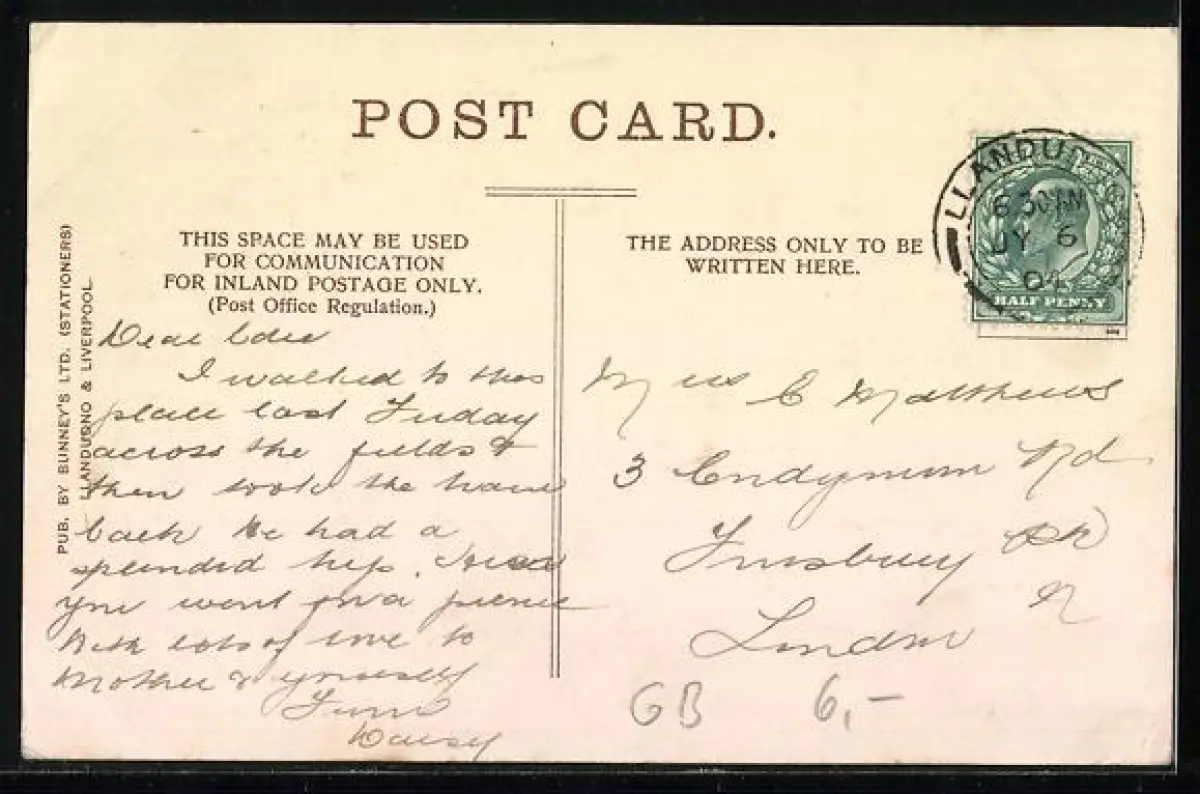 POST CARD.
THIS SPACE MAY BE USED
FOR COMMUNICATION
FOR INLAND POSTAGE ONLY.
(Post Office Regulation.)
THE ADDRESS ONLY TO BE
WRITTEN HERE.
PUB. BY BUNNEY'S LTD. (STATIONERS)
LLANDUDNO & LIVERPOOL.
LLANDUDNO
6 30 AM
JY 6
04
HALF PENNY
Dear
I walked to this
place last Friday
across the fields &
then took the train
back We had a
splendid trip.
you went for a picnic
With lots of love to
Mother & yourself
From
Daisy
Miss C Matthews
3 Endymion Rd
Finsbury Pk
N
London
GB 6,-